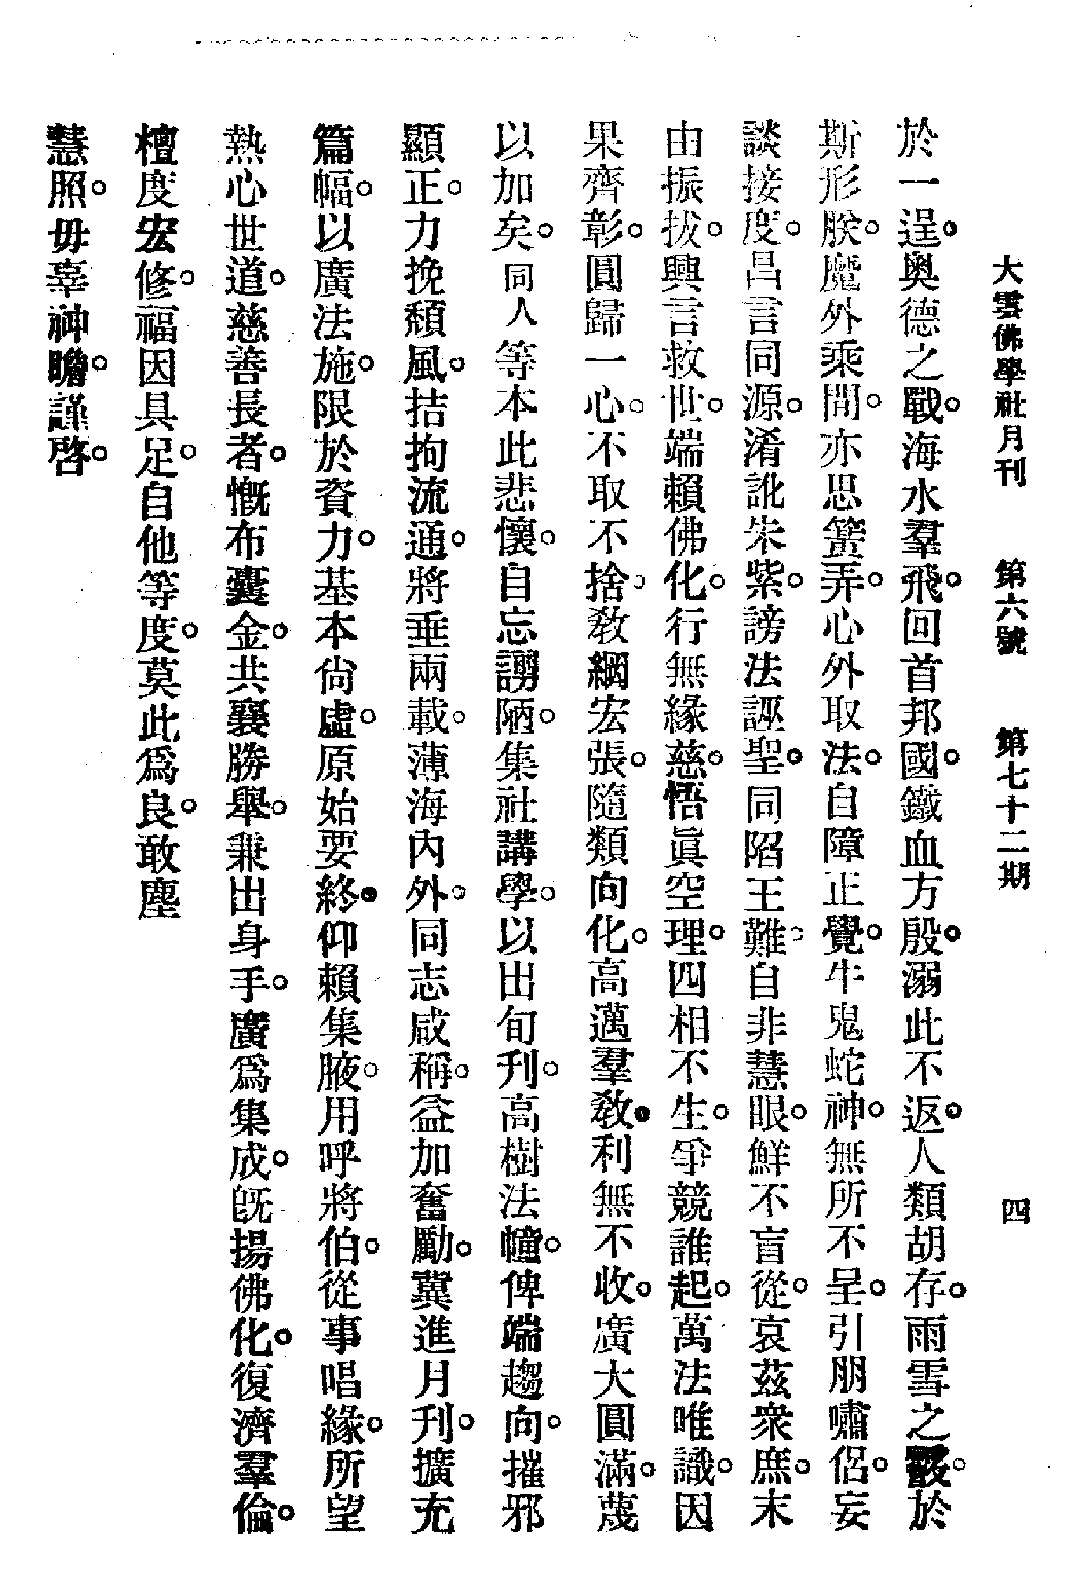 大雲佛學社月刊　第六號　第七十二期　四
於一逞。奧德之戰。海水羣飛。回首邦國。鐵血方殷。溺此不返。人類胡存。雨雪之。於
斯形朕。魔外乘間。亦思簧弄。心外取法。自障正覺。牛鬼蛇神。無所不呈。引朋嘯侶。妄
談接度。昌言同源。淆訛朱紫。謗法誣聖。同陷王難。自非慧眼。鮮不盲從。哀茲衆庶。末
由振拔。興言救世。端賴佛化。行無緣慈。悟眞空理。四相不生。爭競誰起。萬法唯識。因
果齊彰。圓歸一心。不取不捨。敎綱宏張。隨類向化。高邁羣敎。利無不收。廣大圓滿。蔑
以加矣。同人等本此悲懷。自忘謭陋。集社講學。以出旬刊。高樹法幢。俾端趨向。摧邪
顯正。力挽頹風。拮拘流通。將垂兩載。薄海內外。同志咸稱。益加奮勵。冀進月刊。擴充
篇幅。以廣法施。限於資力。基本尙虛。原始要終。仰賴集腋。用呼將伯。從事唱緣。所望
熱心世道。慈善長者。慨布囊金。共襄勝舉。兼出身手。廣爲集成。旣揚佛化。復濟羣倫。
檀度宏修。福因具足。自他等度。莫此爲良。敢塵
慧照。毋辜神瞻。謹啓。